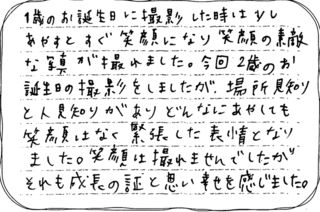 1歳のお誕生日に撮影した時は少し
あやすとすぐ笑顔になり笑顔の素敵
な写真が撮れました。今回2歳のお
誕生日の撮影をしましたが、場所見知り
と人見知りがありどんなにあやしても
笑顔はなく緊張した表情となり
ました。笑顔は撮れませんでしたが
それも成長の証と思い幸せを感じました。